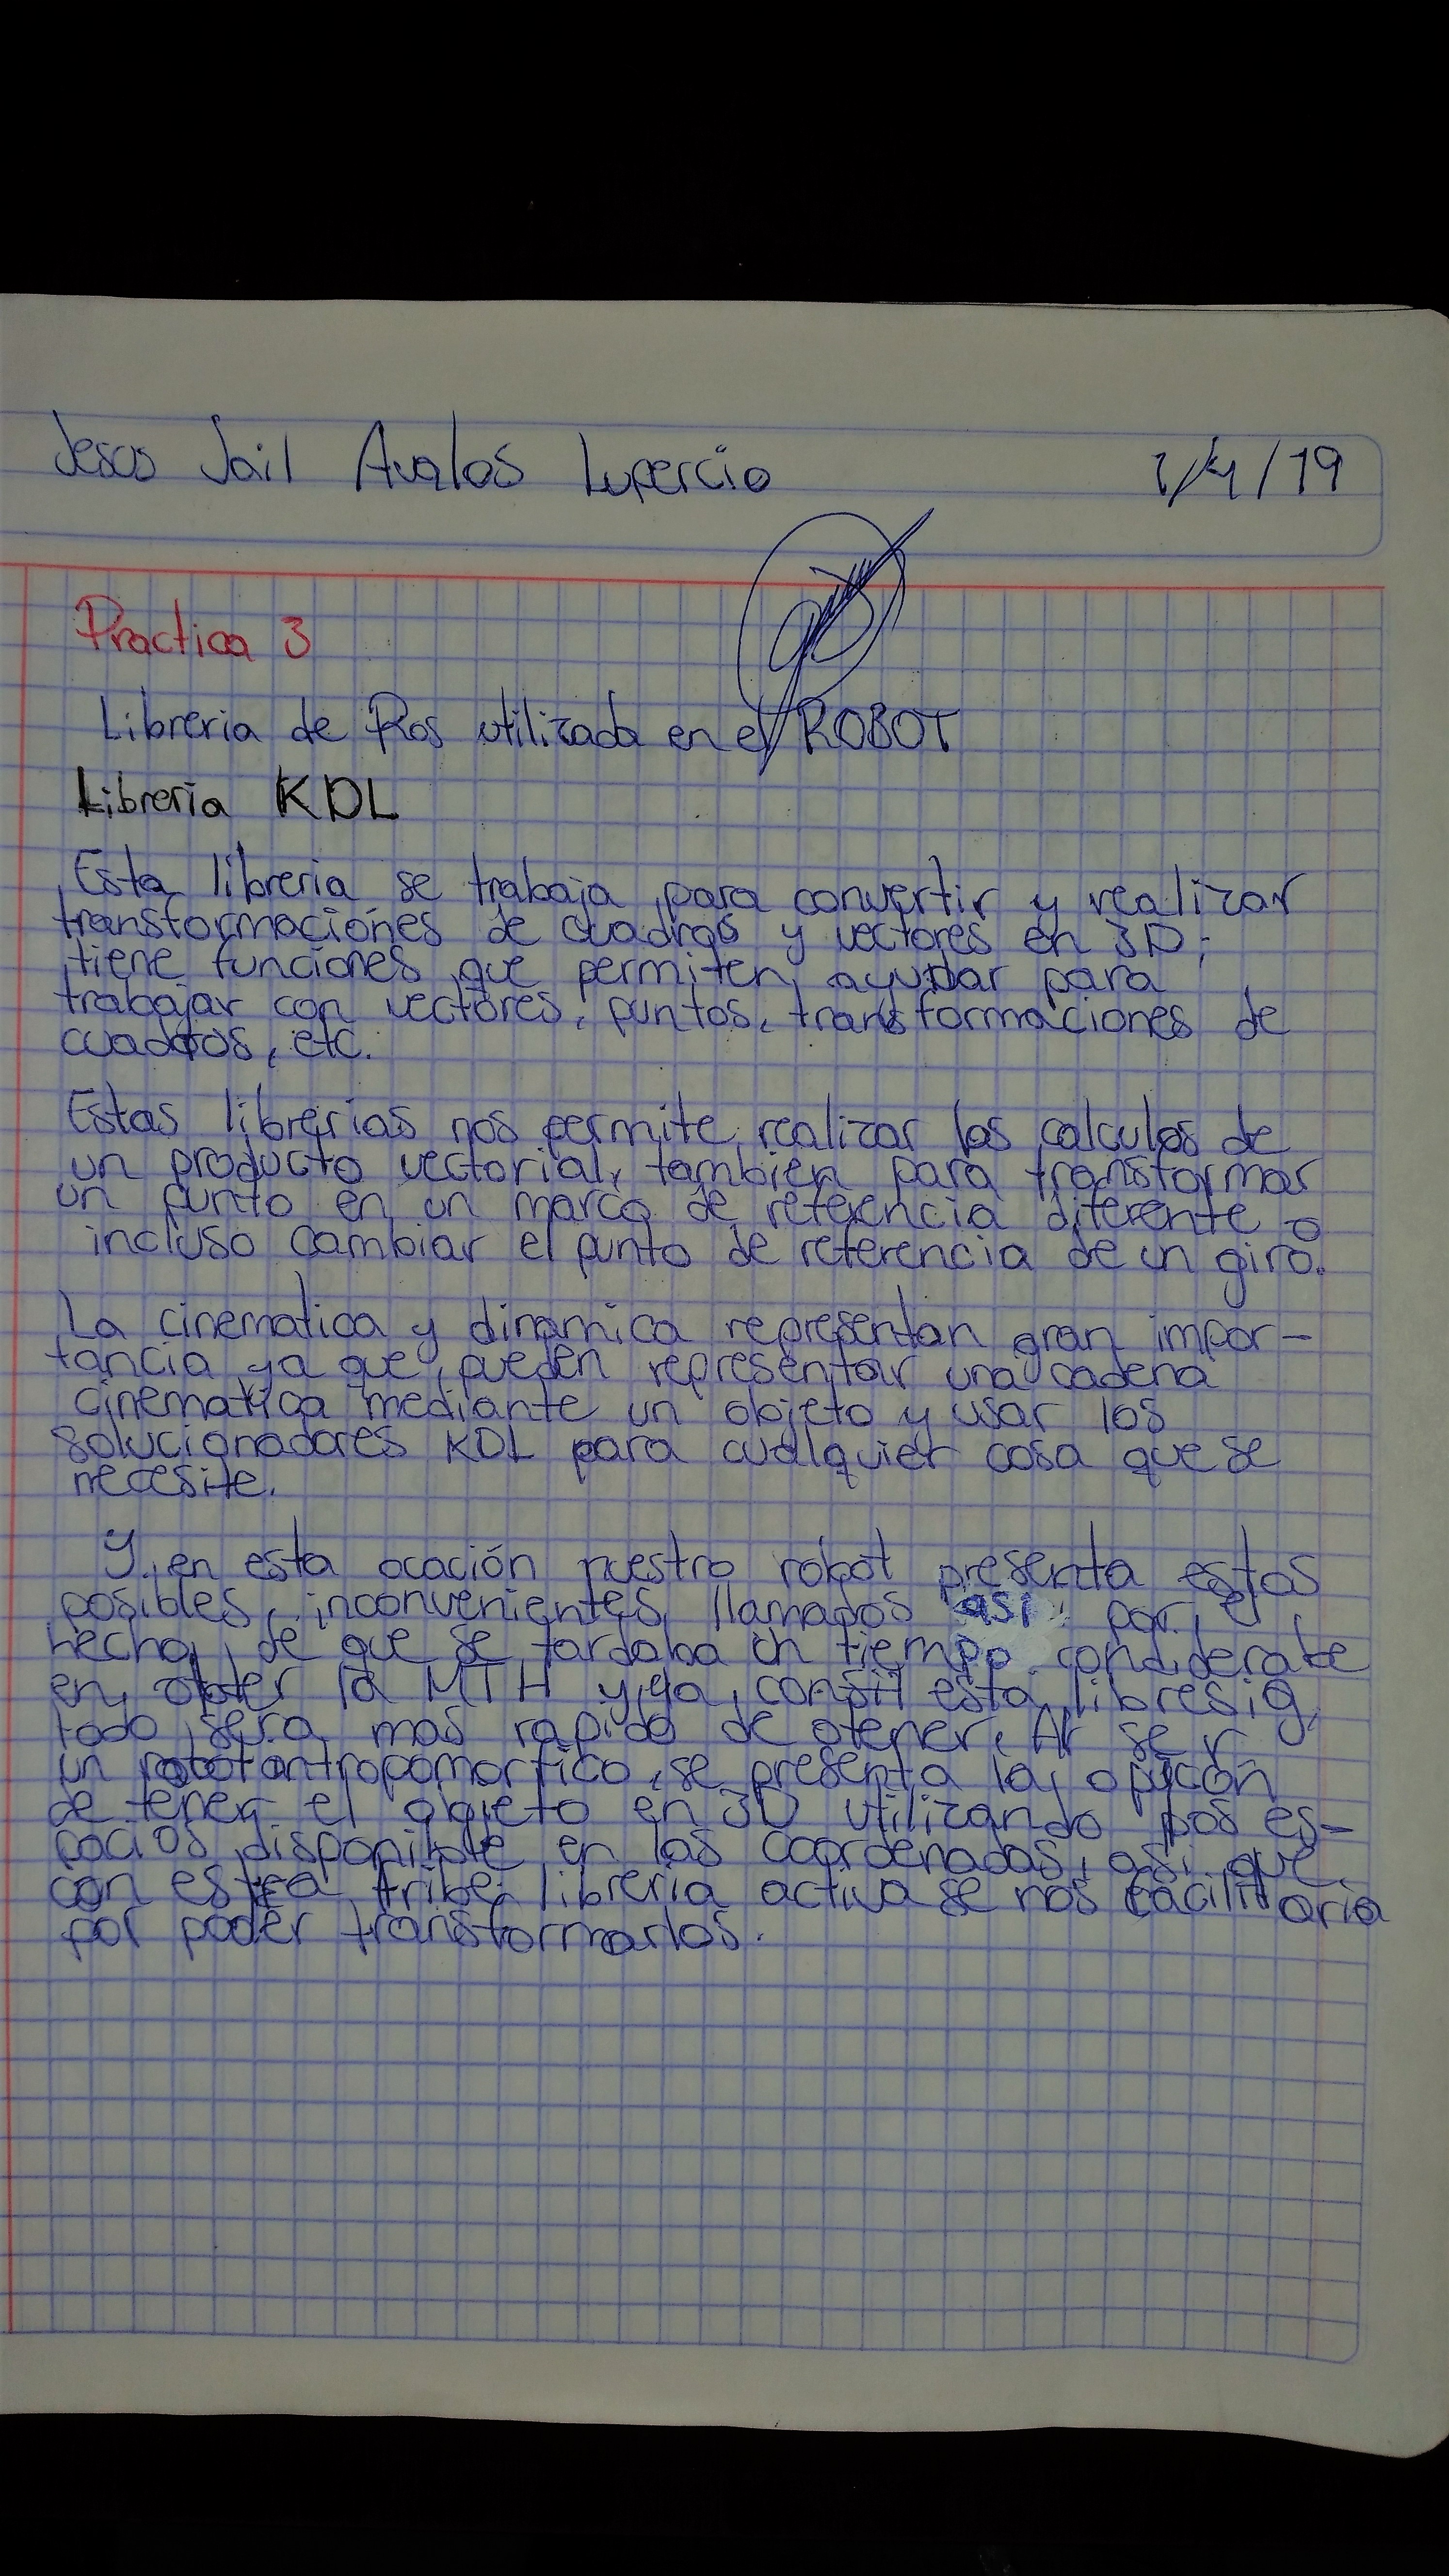 Jesus Jail Avalos Lupercio 1/4/19
Practica 3
Libreria de Ros utilizada en el ROBOT
Libreria KDL
Esta libreria se trabaja para convertir y realizar
transformaciones de cuadros y vectores en 3D;
tiene funciones que permiten ayudar para
trabajar con vectores, puntos, transformaciones de
cuadros, etc.
Estas librerias nos permite realizar los calculos de
un producto vectorial, tambien para transformar
un punto en un marco de referencia diferente o
incluso cambiar el punto de referencia de un giro.
La cinematica y dinamica representan gran impor-
tancia ya que pueden representar una cadena
cinematica mediante un objeto y usar los
solucionadores KDL para cualquier cosa que se
necesite.
Y en esta ocación nuestro robot presenta estos
posibles inconvenientes, llamados asi por el
hecho de que se tardaba un tiempo
en la MTH y ya esta
todo sera mas rapido de otener. Al ser
un robot antropomorfico, se presenta la
de tener el objeto en 3D utilizando los es-
pacios disponible en las coordenadas, asi que
con libreria activa se nos facilitaria
por poder transformarlos.